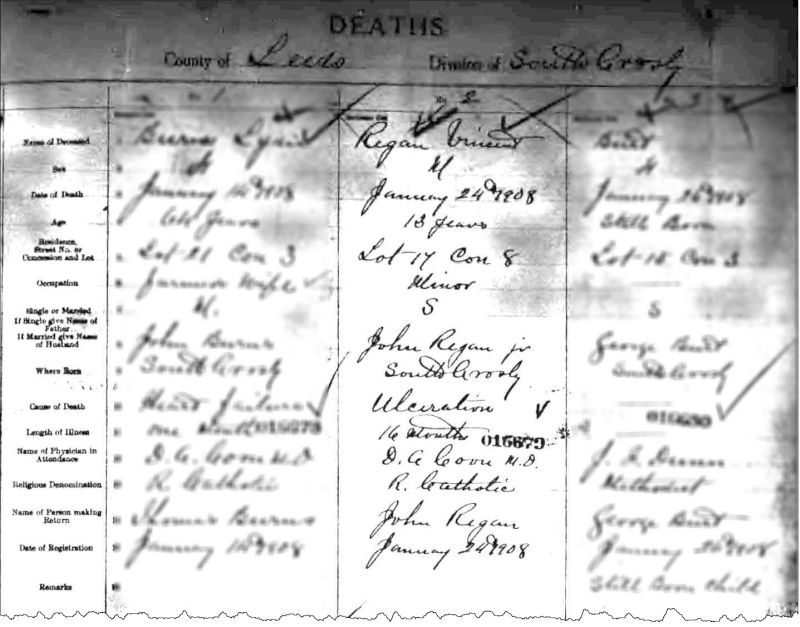 DEATHS
County of Leeds Division of South Crosby
No. 2
Name of Deceased Burns Regan Vincent
Sex M
Date of Death January 14 1908 January 24 1908 January 26 1908
Age 13 years Still Born
Residence, Street No. or Concession and Lot Lot 21 Con 3 Lot 17 Con 8 Lot 18 Con 3
Occupation Farmers Wife Minor
Single or Married M. S S
If Single give Name of Father
If Married give Name of Husband John Burns John Regan jr George
Where Born South Crosby South Crosby South Crosby
Cause of Death Heart Failure Ulceration
Length of Illness one Month 016678 16 Months 016679 016680
Name of Physician in Attendance D. A. Coon M.D. D. A Coon M.D.
Religious Denomination R. Catholic R. Catholic Methodist
Name of Person making Return Thomas Burns John Regan George
Date of Registration January 14 1908 January 24 1908 January 26 1908
Remarks Still Born Child